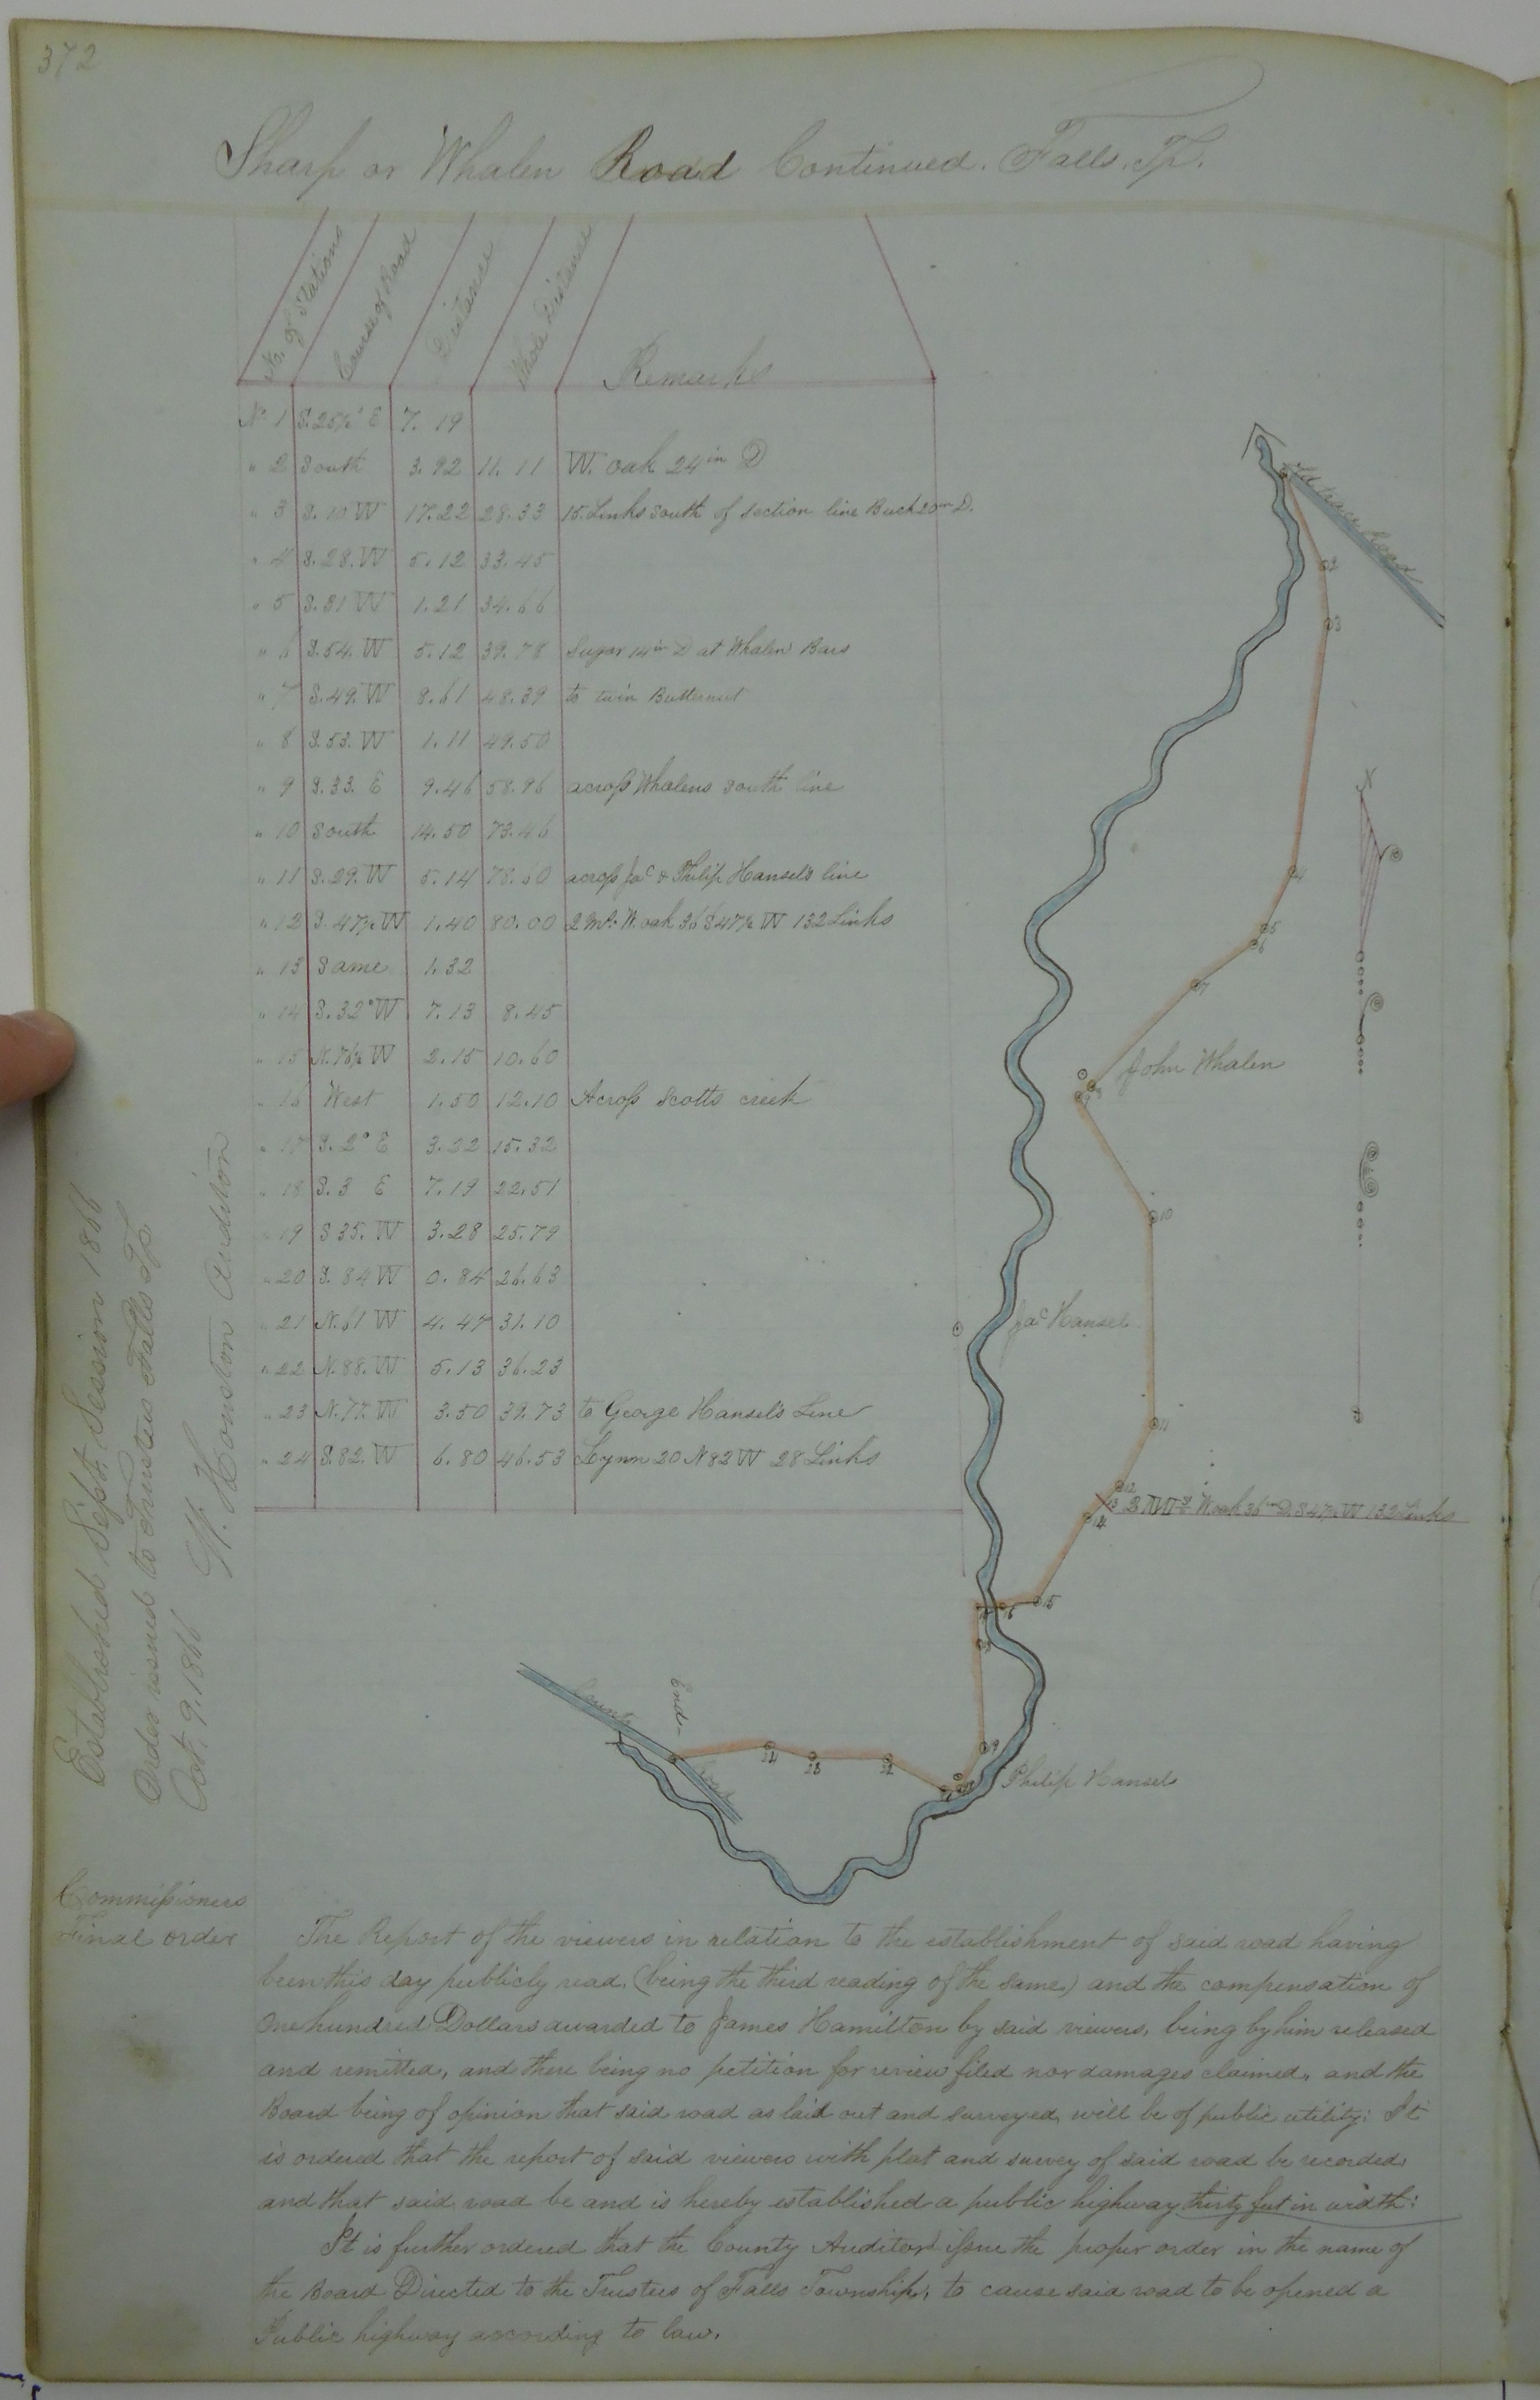 372
Sharp or Whalen Road Continued. Falls. Tp.
No. of Stations Course of Road Distance Whole Distance Remarks
No 1 S. 25½° E 7. 19
" 2 South 3. 92 11. 11 W. oak 24 in D
" 3 S. 10 W 17. 22 28. 33 15. Links south of section line Buck 20 in D.
" 4 S. 28. W 5. 12 33. 45
" 5 S. 31 W 1. 21 34. 66
" 6 S. 54. W 5. 12 39. 78 Sugar 14 in D at Whalen Bars
" 7 S. 49. W 8. 61 48. 39 to twin Butternut
" 8 S. 53. W 1. 11 49. 50
" 9 S. 33. E 9. 46 58. 96 across Whalens South line
" 10 South 14. 50 73. 46
" 11 S. 29. W 5. 14 78. 60 across Jac & Philip Hansel's line
" 12 S. 47½ W 1. 40 80. 00 2 Ms. W. oak 36 S 47½ W 132 Links
" 13 Same 1. 32
" 14 S. 32° W 7. 13 8. 45
" 15 N. 76½ W 2. 15 10. 60
" 16 West 1. 50 12. 10 Across Scotts creek
" 17 S. 2° E 3. 22 15. 32
" 18 S. 3 E 7. 19 22. 51
" 19 S 35. W 3. 28 25. 79
" 20 S. 84 W 0. 84 26. 63
" 21 N. 61 W 4. 47 31. 10
" 22 N. 88. W 5. 13 36. 23
" 23 N. 77. W 3. 50 39. 73 to George Hansel's Line
" 24 S. 82. W 6. 80 46. 53 Lynn 20 N 82 W 28 Links
Established Sept. Session 1866
Order issued to Trustees Falls Tp
Oct. 9. 1866
W. Houston Auditor
Road
2
3
N
4
5
6
7
John Whalen
8
9
10
Jac Hansel
11
12
13 2 MS W. oak 36 in D. S 47½ W 132 Links
14
15
16
19
Philip Hansels
22
23
24
End
County Road
Commissioners
Final order
The Report of the viewers in relation to the establishment of said road having
been this day publicly read, (being the third reading of the same) and the compensation of
One hundred Dollars awarded to James Hamilton by said viewers, being by him released
and remitted, and there being no petition for review filed nor damages claimed, and the
Board being of opinion that said road as laid out and surveyed, will be of public utility: It
is ordered that the report of said viewers with plat and survey of said road be recorded,
and that said road be and is hereby established a public highway thirty feet in width:
It is further ordered that the County Auditor issue the proper order in the name of
the Board Directed to the Trustees of Falls Township, to cause said road to be opened a
Public highway according to law.